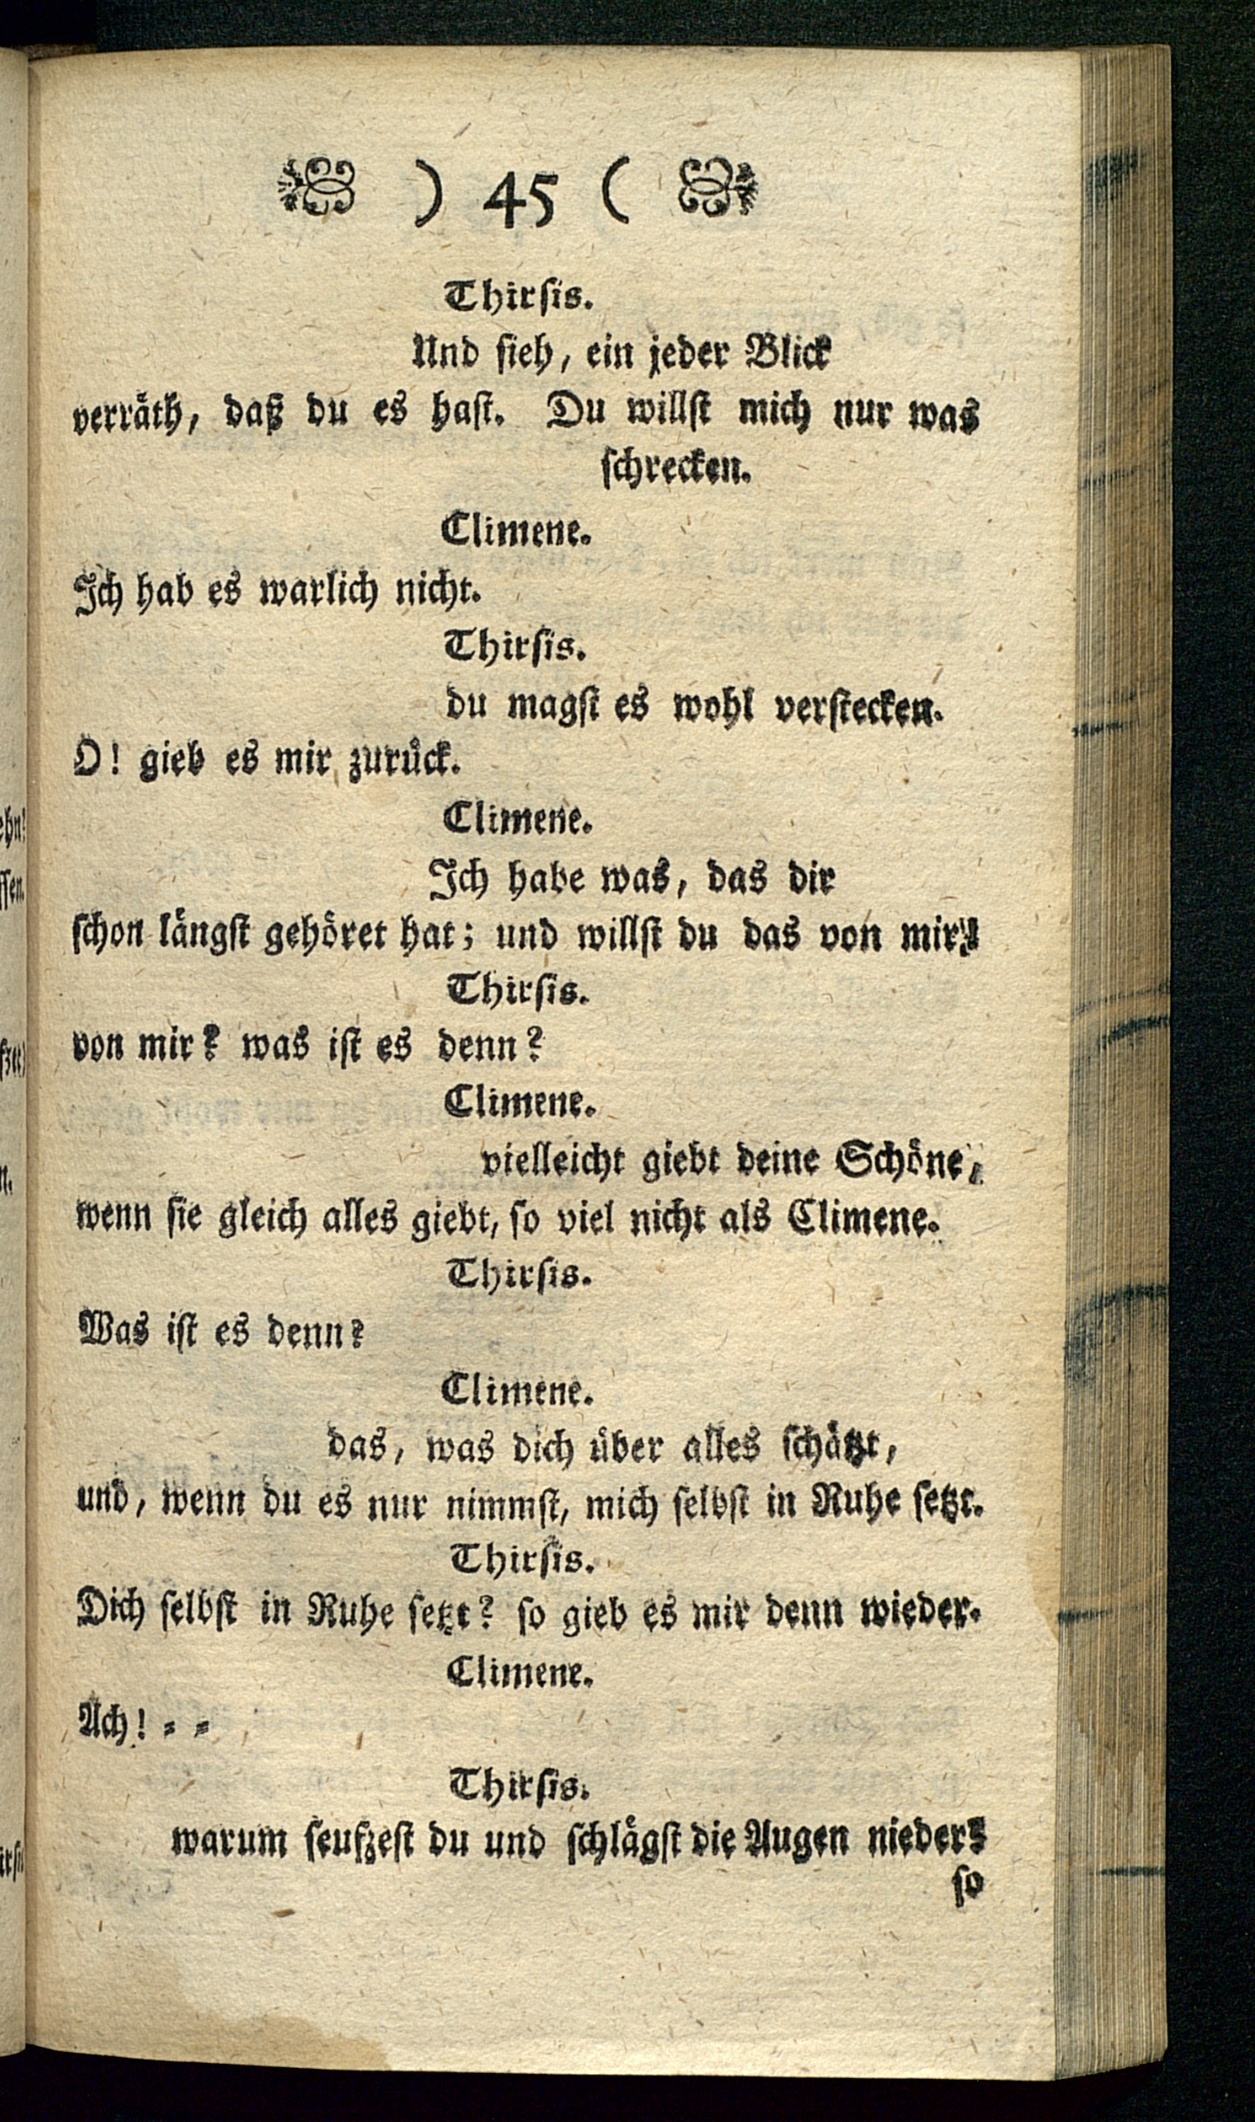 ) 45 (
Thirsis.
Und sieh, ein jeder Blick
verräth, daß du es hast. Du willst mich nur was
schrecken.
Climene.
Ich hab es warlich nicht.
Thirsis.
du magst es wohl verstecken.
O! gieb es mir zurück.
Climene.
Ich habe was, das dir
schon längst gehöret hat; und willst du das von mir?
Thirsis.
von mir? was ist es denn?
Climene.
vielleicht giebt deine Schöne,
wenn sie gleich alles giebt, so viel nicht als Climene.
Thirsis.
Was ist es denn?
Climene.
das, was dich über alles schätzt,
und, wenn du es nur nimmst, mich selbst in Ruhe setzt.
Thirsis.
Dich selbst in Ruhe setzt? so gieb es mir denn wieder.
Climene.
Ach! = =
Thirsis.
warum seufzest du und schlägst die Augen nieder?
so